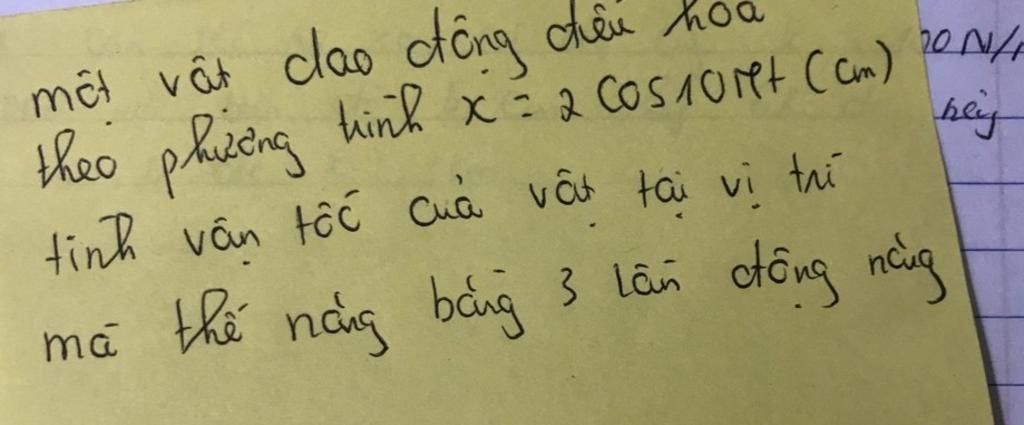 một vật dao động điều hoà
theo phương trình x = 2 cos10πt (cm)
tính vận tốc của vật tại vị trí
mà thế năng bằng 3 lần động năng
00 N/